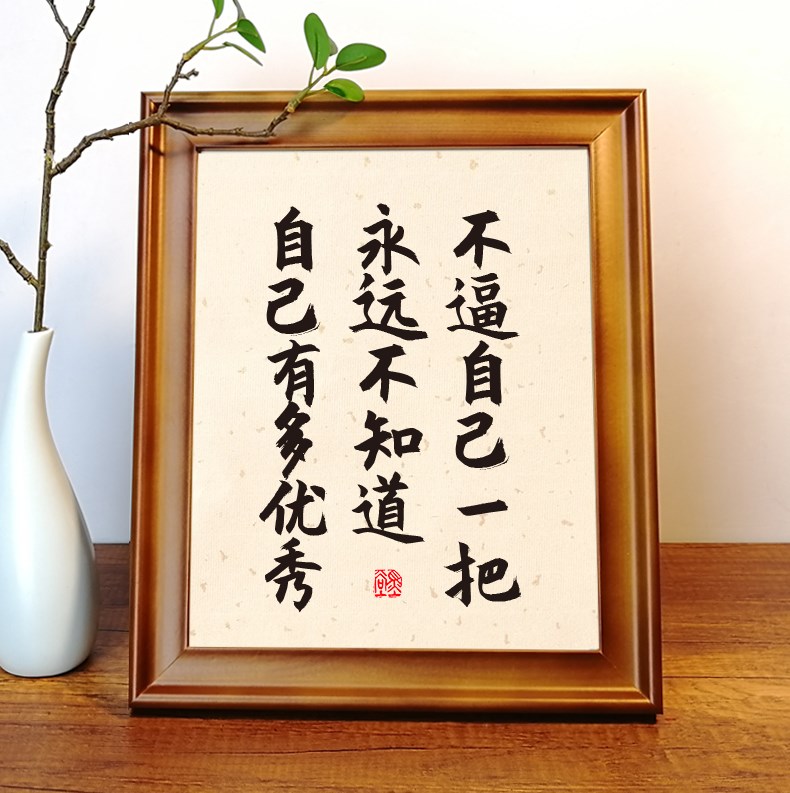 不逼自己一把
永远不知道
自己有多优秀